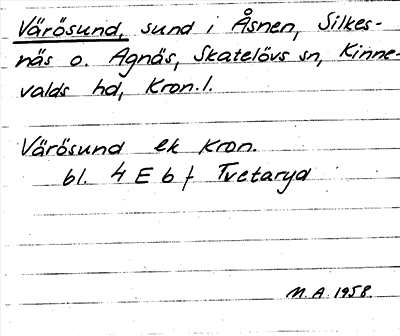 Värösund, sund i Åsnen, Silkes-
näs o. Agnäs, Skatelövs sn, Kinne-
valds hd, Kron. l.
Värösund ek kron.
bl. 4 E b f Tvetaryd
M. A. 1958.